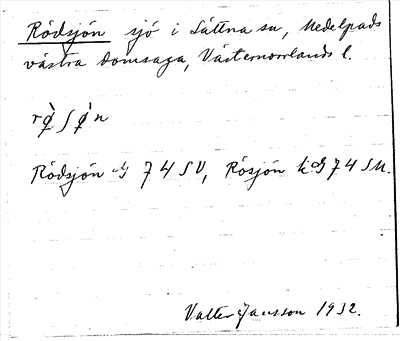 Rödsjön sjö i Sättna sn, Medelpads
västra domsaga, Västernorrlands l.
rø̀ʃø̀n
Rödsjön G 74 SV, Rösjön k:G 74 SU.
Valter Jansson 1932.